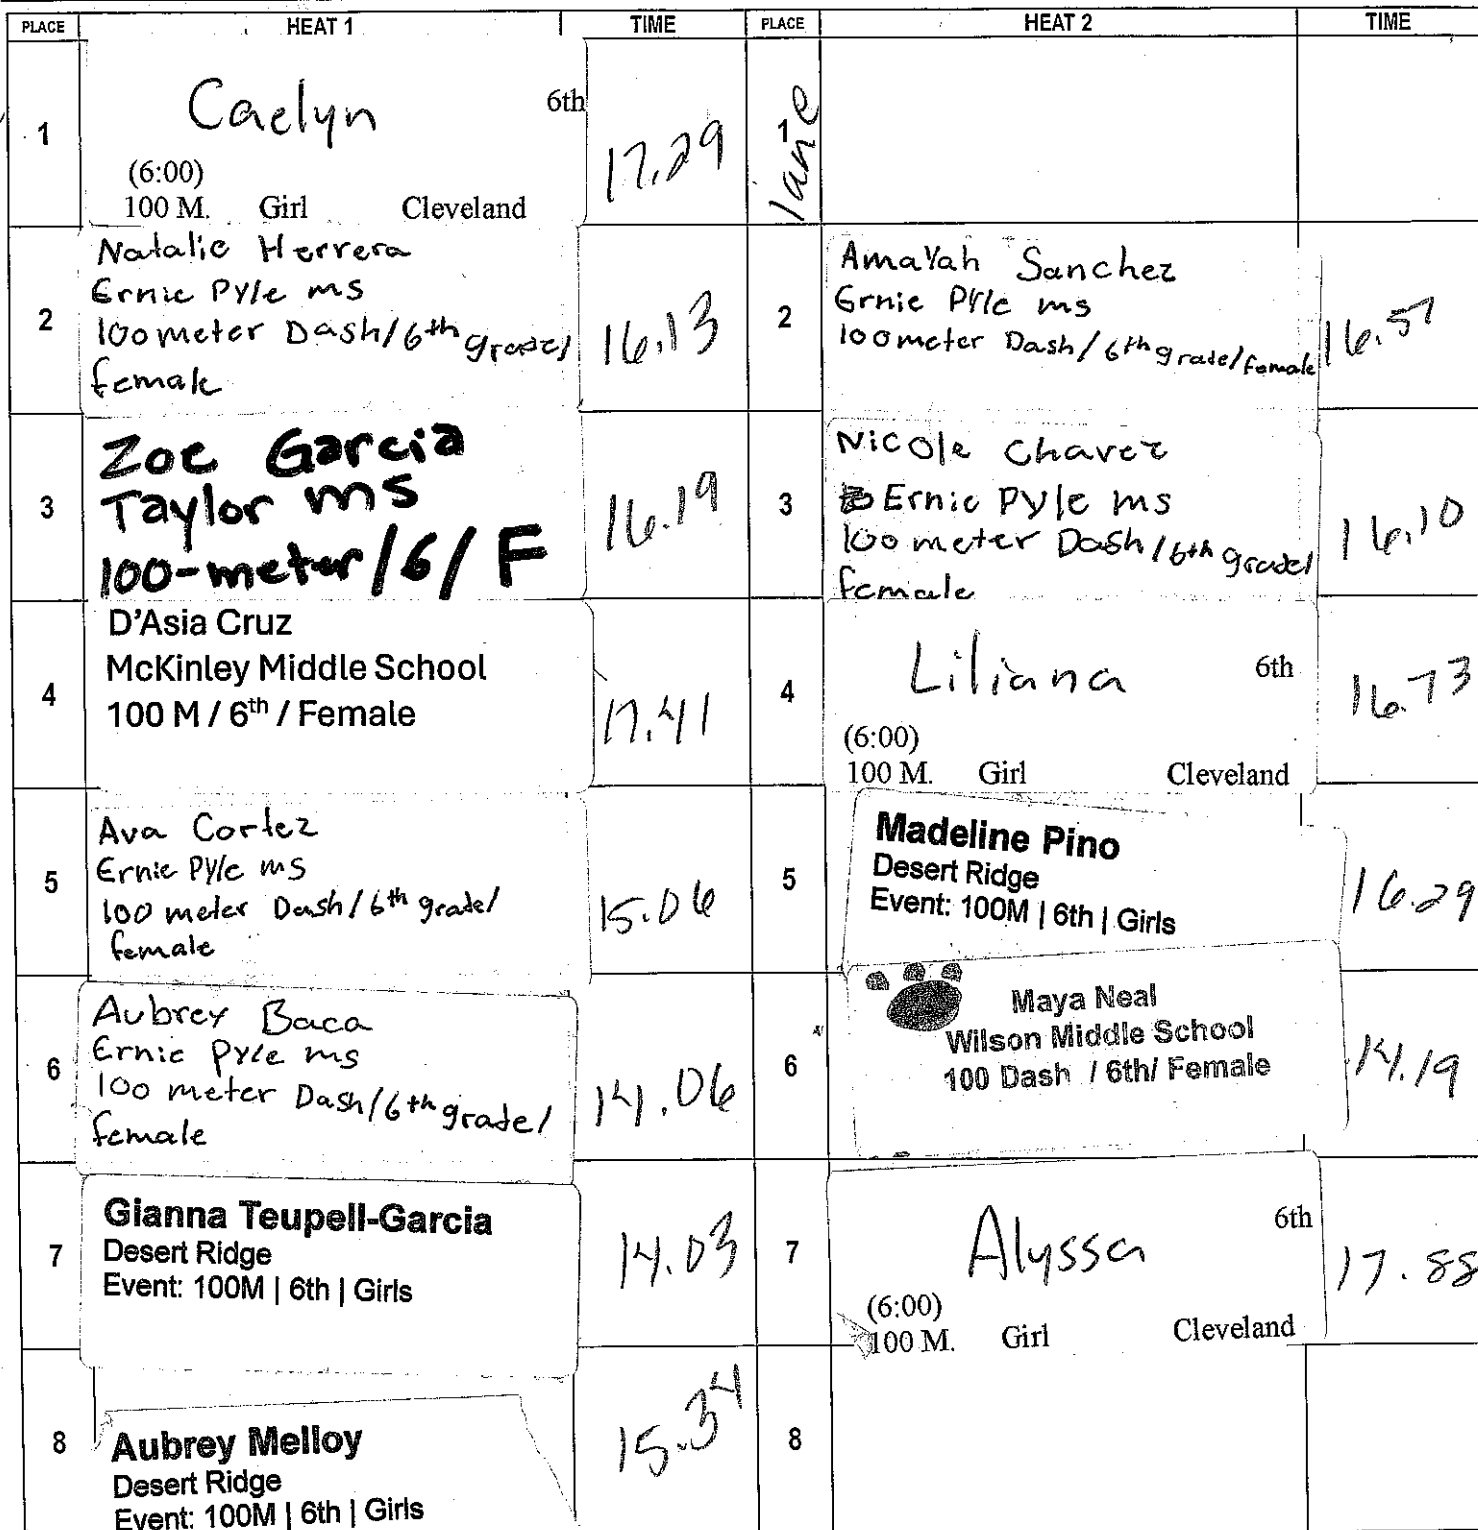 PLACE HEAT 1 TIME PLACE HEAT 2 TIME
1
Caelyn 6th
(6:00)
100 M. Girl Cleveland
17.29
1
lane
2
Natalie Herrera
Ernie Pyle ms
100 meter Dash/6th grade/
female
16.13
2
Amayah Sanchez
Ernie Pyle ms
100 meter Dash/6th grade/female
16.57
3
Zoe Garcia
Taylor ms
100-meter/6/F
16.19
3
Nicole Chavez
Ernie Pyle ms
100 meter Dash/6th grade/
female
16.10
4
D'Asia Cruz
McKinley Middle School
100 M / 6th / Female
17.41
4
Liliana 6th
(6:00)
100 M. Girl Cleveland
16.73
5
Ava Cortez
Ernie Pyle ms
100 meter Dash/6th grade/
female
15.06
5
Madeline Pino
Desert Ridge
Event: 100M | 6th | Girls
16.29
6
Aubrey Baca
Ernie Pyle ms
100 meter Dash/6th grade/
female
14.06
6
Maya Neal
Wilson Middle School
100 Dash / 6th/ Female
14.19
7
Gianna Teupell-Garcia
Desert Ridge
Event: 100M | 6th | Girls
14.03
7
Alyssa 6th
(6:00)
100 M. Girl Cleveland
17.88
8
Aubrey Melloy
Desert Ridge
Event: 100M | 6th | Girls
15.34
8